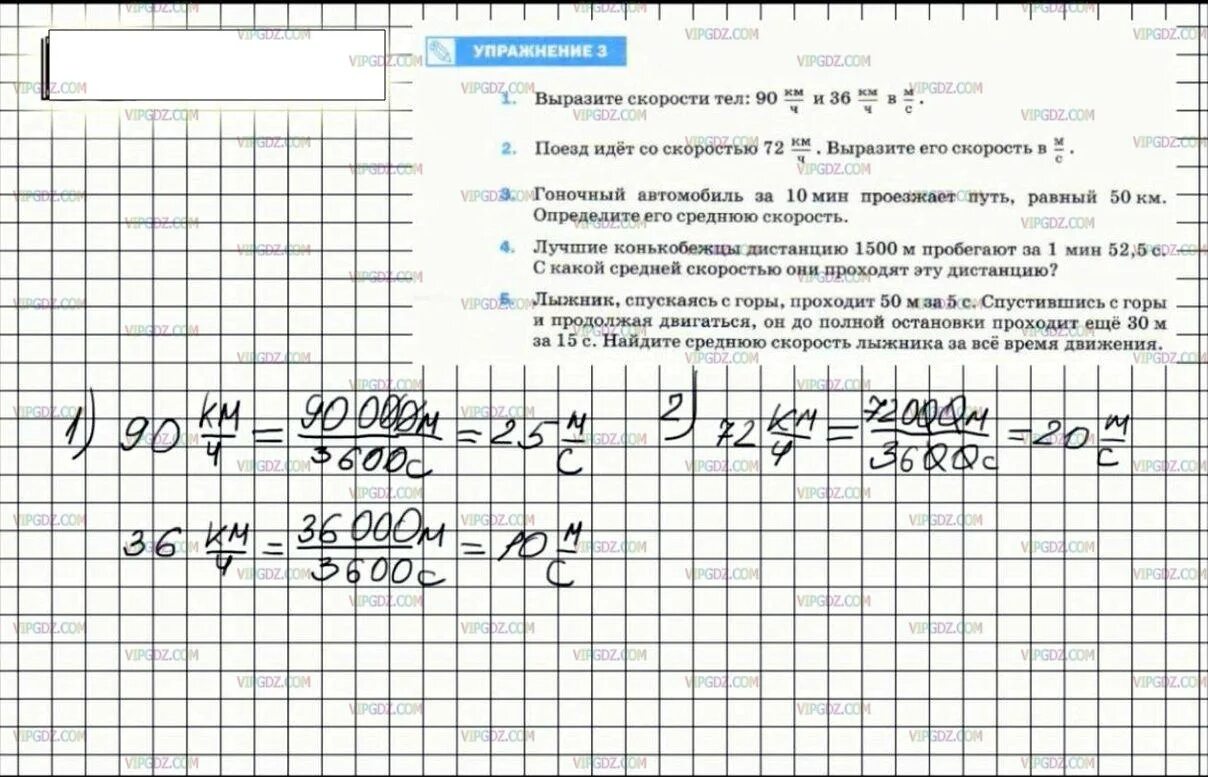 УПРАЖНЕНИЕ 3
1. Выразите скорости тел: 90 км/ч и 36 км/ч в м/с.
2. Поезд идёт со скоростью 72 км/ч. Выразите его скорость в м/с.
3. Гоночный автомобиль за 10 мин проезжает путь, равный 50 км.
Определите его среднюю скорость.
4. Лучшие конькобежцы дистанцию 1500 м пробегают за 1 мин 52,5 с.
С какой средней скоростью они проходят эту дистанцию?
5. Лыжник, спускаясь с горы, проходит 50 м за 5 с. Спустившись с горы
и продолжая двигаться, он до полной остановки проходит ещё 30 м
за 15 с. Найдите среднюю скорость лыжника за всё время движения.
1) 90 км/ч = 90 000м/3600с = 25 м/с
2) 72 км/ч = 72000м/3600с = 20 м/с
36 км/ч = 36 000м/3600с = 10 м/с
VIPGDZ.COM